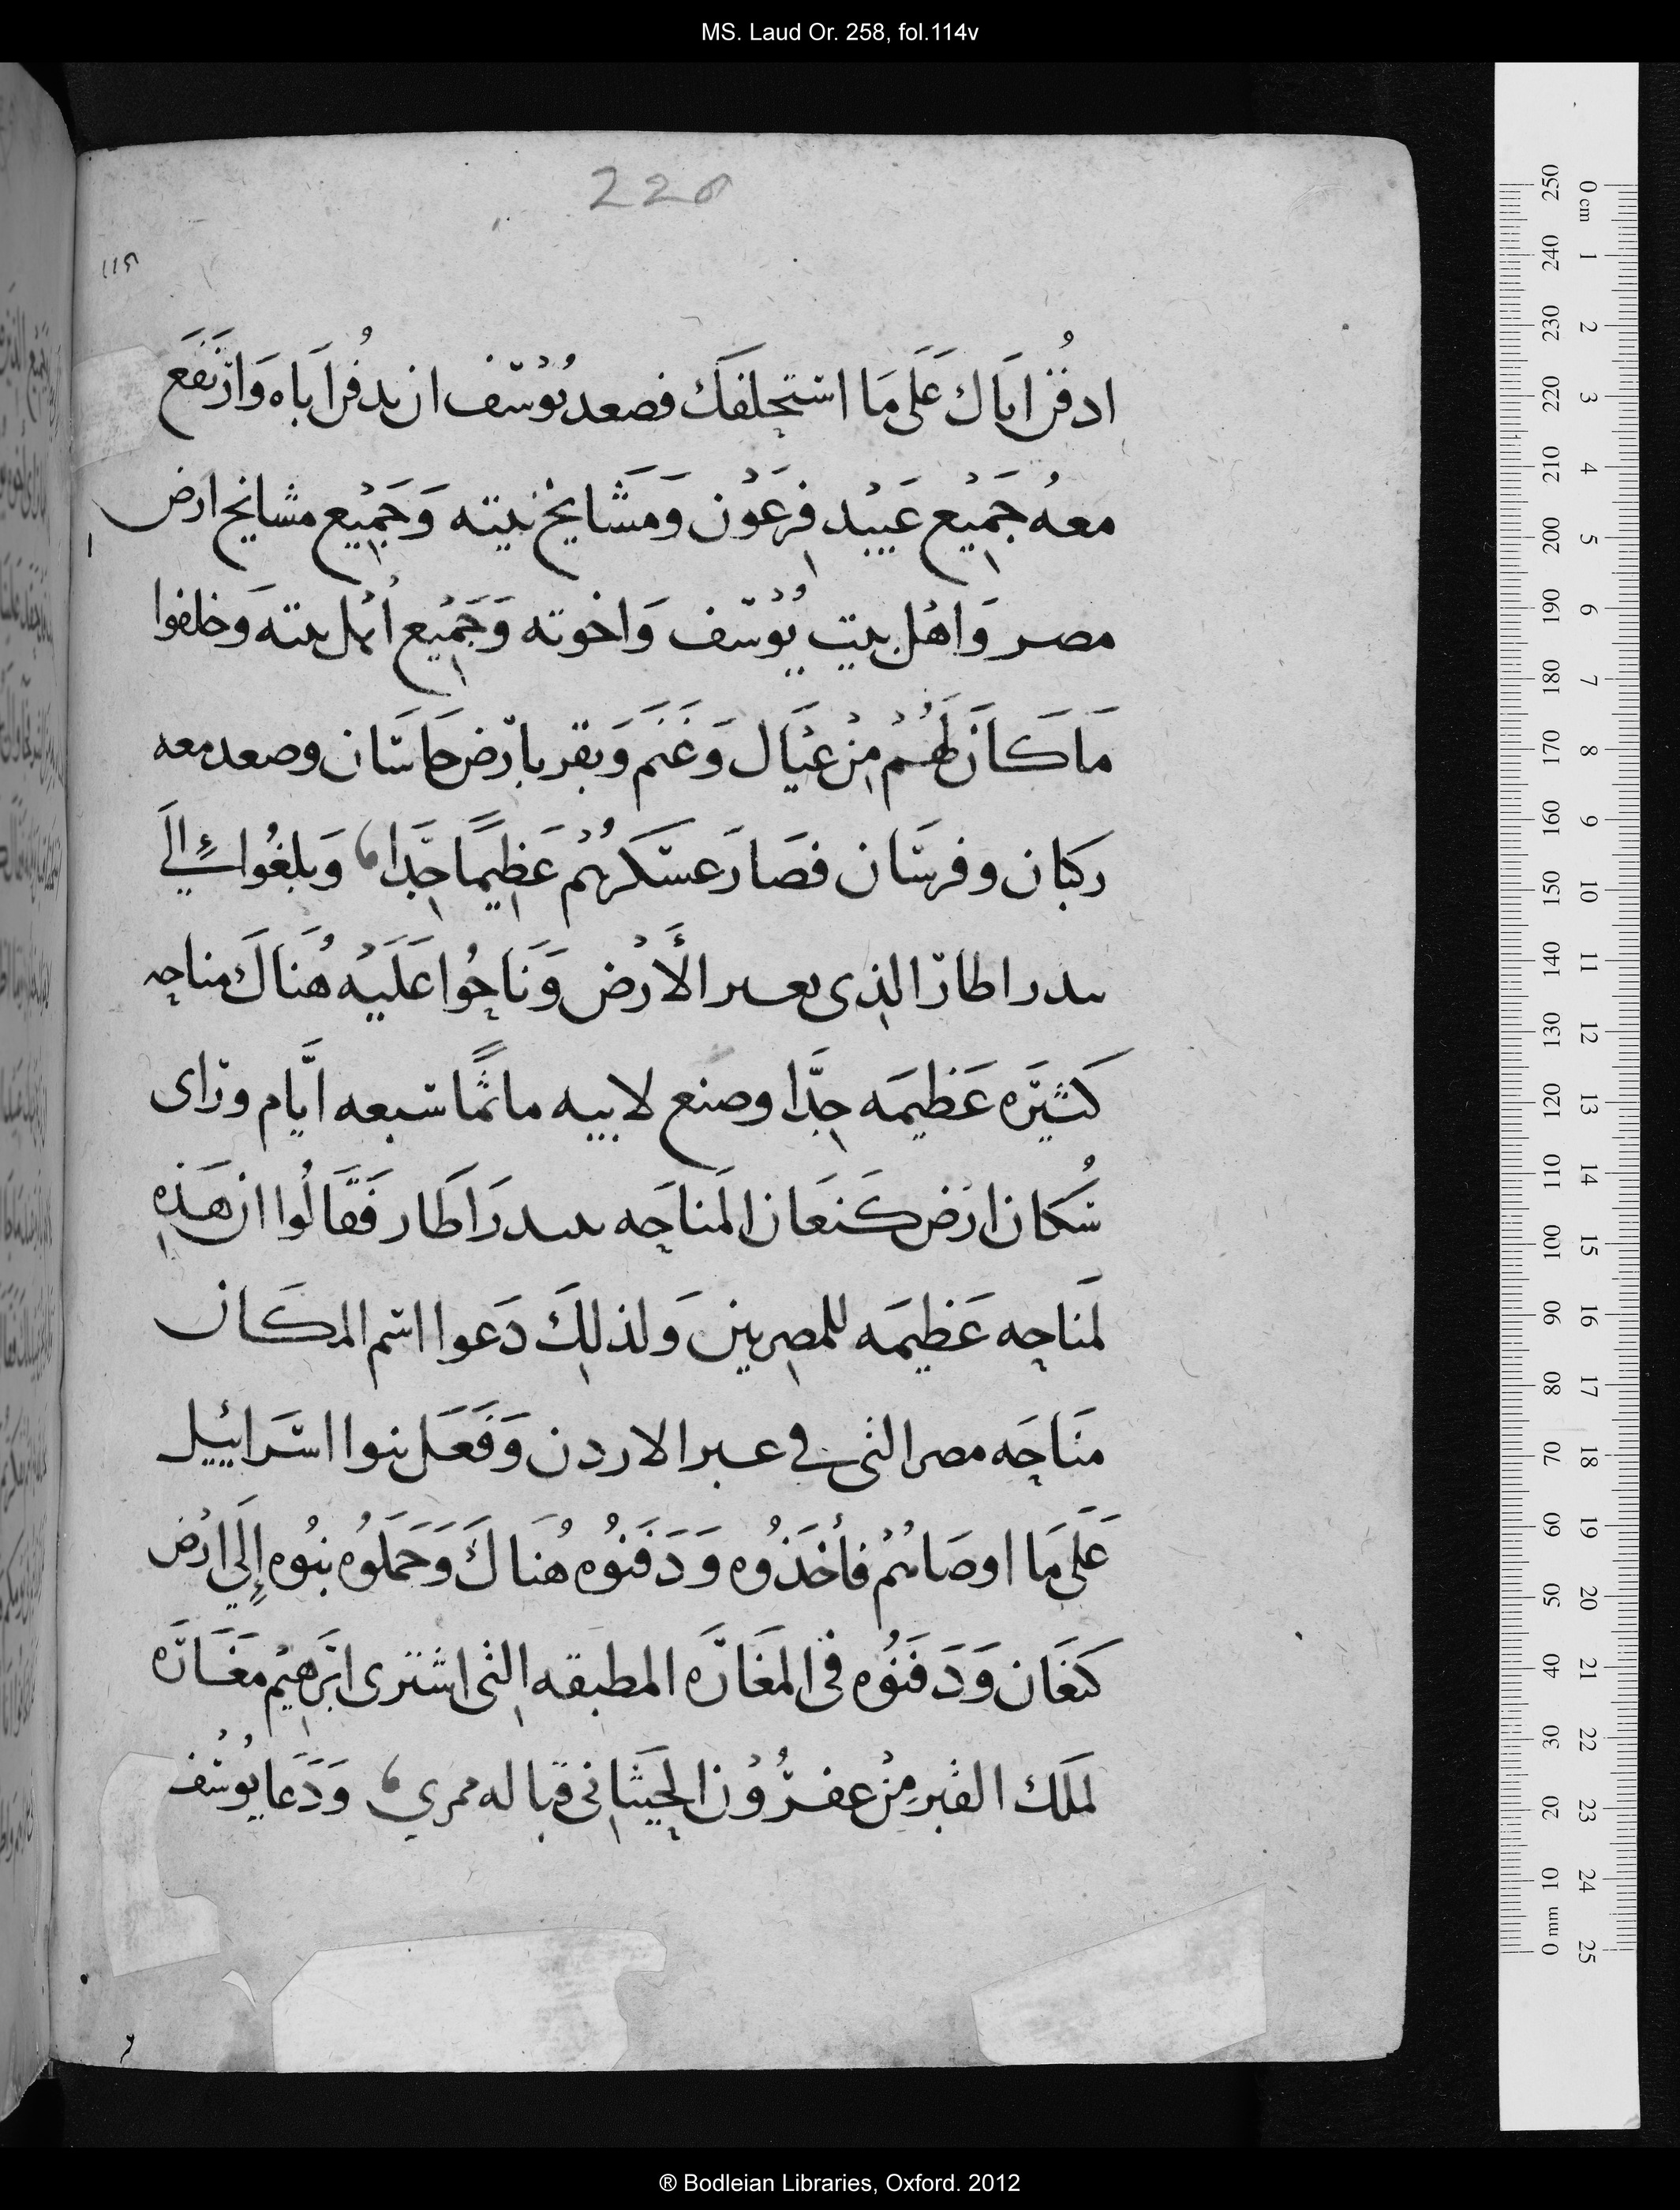 MS. Laud Or. 258, fol.114v
220
ادفُن اباك عَلَى مَا استحلفكَ فصعد يُوْسف ان يدفُن اَباه وَارْتفَع
معهُ جَمِيْع عَبيْد فِرعَوْن وَمَشَايخْ بَيته وَجَمِيْع مشايخ ارض
مصر وَاهْل بيت يُوْسف وَاخوته وَجَمِيْع اهْل بيته وَخلفوا
مَا كَانَ لهُمْ مِنْ عيَال وَغَنَم وَبقر بارْض جَاسَان وصعد معه
ركبان وفرسَان فصَارَ عسْكَرهُمْ عَظِيمًا جِدَّا وَبلغُوا إِلَي
بيدر اطار الذِى بعبر الأَرْض وَنَاحُوا عَلَيْه هُنَاكَ مناحه
كَثيَره عَظيمَه جِدَّا وصنع لابيه ماتمًا سبعه ايَّام ورَاى
سُكان ارض كَنعَان المَناحَه ببيدرَ اطَار فَقَالُوا ان هَذِه
لمَناحه عَظيمَه للمصِريين وَلذلِكَ دَعوا اسْم المكَان
منَاحَه مصر التى في عبر الاردن وَفَعَل بنوا اسْرَائيل
عَلَى مَا اوصَاهُمْ فأخَذُوه وَدَفَنوُه هُنَاكَ وَحَمَلَوُه بنوُه إِلَي ارْض
كَنعَان وَدَفَنوُه فى المغَارَه المطبقه التِى اشترى ابْرَهِيْم مغَارَه
لملَك القبر مِنْ عفرُوْن الحيَثانِى قباله ممري وَدَعَا يُوسْف
® Bodleian Libraries, Oxford. 2012